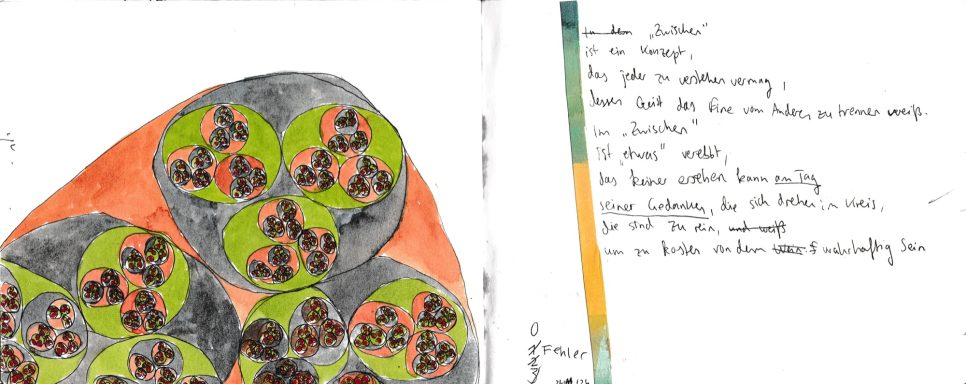 In dem „Zwischen"
ist ein Konzept,
das jeder zu verstehen vermag,
dessen Geist das Eine vom Anderen zu trennen weiß.
Im „Zwischen"
ist „etwas" verebbt,
das keiner ersehen kann am Tag
seiner Gedanken, die sich drehen im Kreis,
die sind zu rein, und weiß
um zu kosten von dem wahrhaftig Sein
0
1 Fehler
2
3